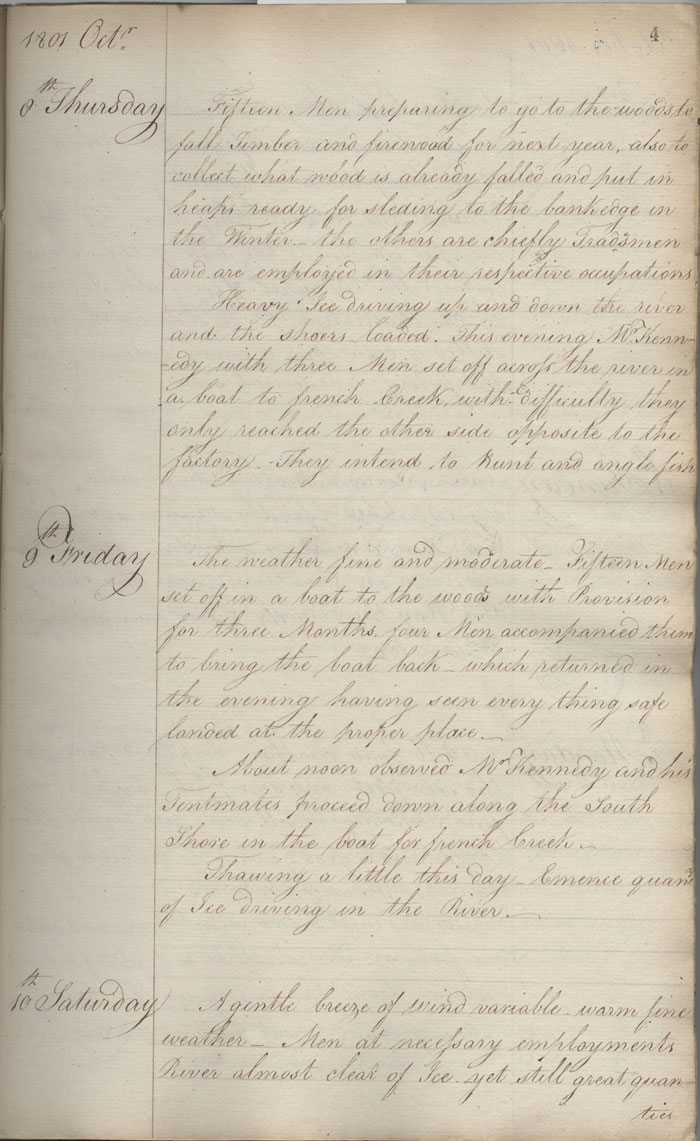 1801 Octr.
4
8th Thursday
Fifteen Men preparing to go to the woods to
fall Timber and firewood for next year, also to
collect what wood is already falled and put in
heaps ready for sleding to the bank edge in
the Winter_ the others are chiefly Tradsmen
and are employed in their respective occupations
Heavy Ice driving up and down the river
and the shoers loaded. This evening Mr Kenn-
-edy with three Men set off across the river in
a boat to french Creek, with difficulty they
only reached the other side opposite to the
factory. They intend to hunt and angle fish
9th Friday
The weather fine and moderate_ Fifteen Men
set off in a boat to the woods with Provision
for three Months, four Men accompanied them
to bring the boat back_ which returned in
the evening having seen every thing safe
landed at the proper place._
About noon observed Mr Kennedy and his
Tentmates proceed down along the South
Shore in the boat for french Creek._
Thawing a little this day_ Emence quans
of Ice driving in the River._
10th Saturday
A gentle breeze of wind variable_ warm fine
weather_ Men at necessary employments
River almost clear of Ice yet still great quan-
ties